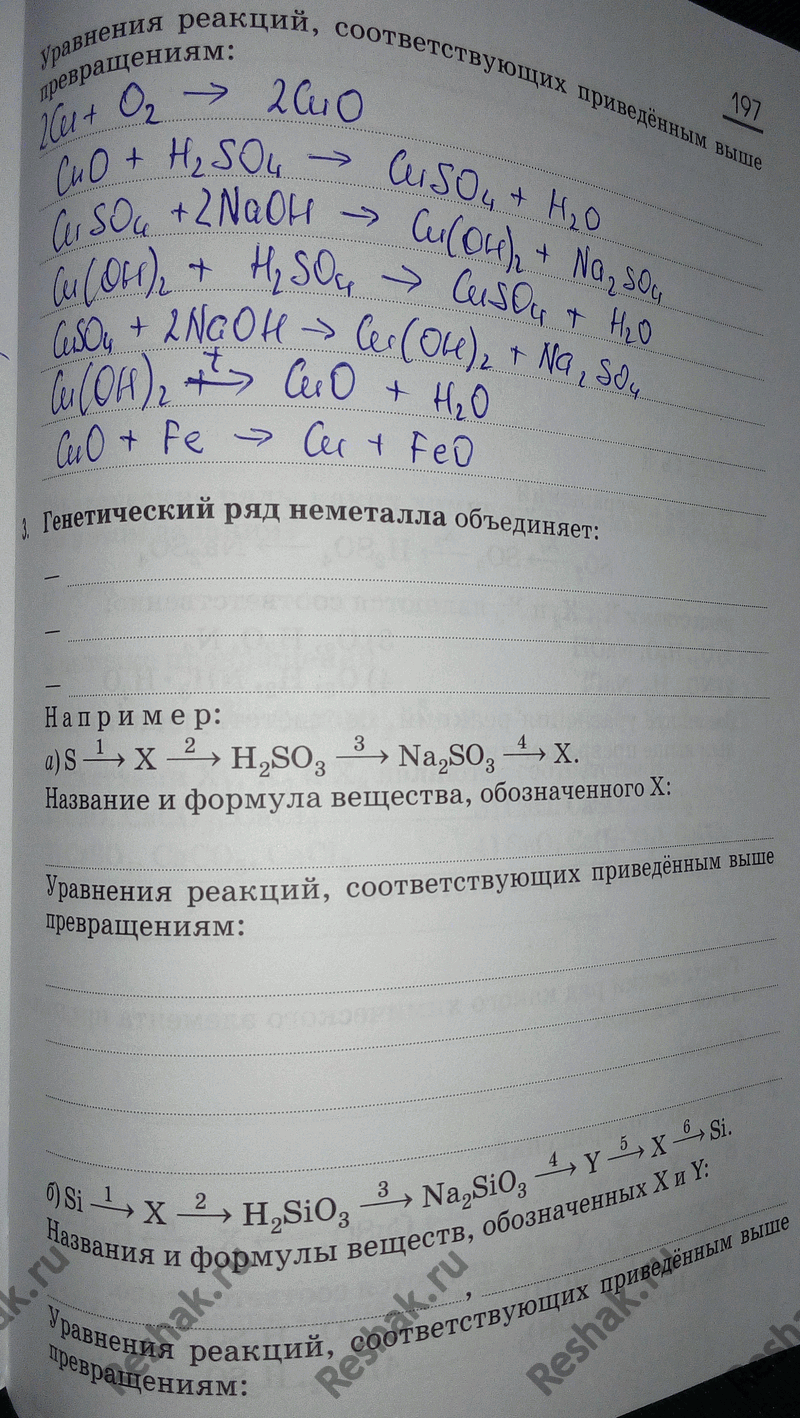 197
Уравнения реакций, соответствующих приведённым выше
превращениям:
2Cu + O₂ → 2CuO
CuO + H₂SO₄ → CuSO₄ + H₂O
CuSO₄ + 2NaOH → Cu(OH)₂ + Na₂SO₄
Cu(OH)₂ + H₂SO₄ → CuSO₄ + H₂O
CuSO₄ + 2NaOH → Cu(OH)₂ + Na₂SO₄
Cu(OH)₂ t→ CuO + H₂O
CuO + Fe → Cu + FeO
3. Генетический ряд неметалла объединяет:
–
–
–
Например:
а) S 1→ X 2→ H₂SO₃ 3→ Na₂SO₃ 4→ X.
Название и формула вещества, обозначенного X:
Уравнения реакций, соответствующих приведённым выше
превращениям:
б) Si 1→ X 2→ H₂SiO₃ 3→ Na₂SiO₃ 4→ Y 5→ X 6→ Si.
Названия и формулы веществ, обозначенных X и Y:
,
Уравнения реакций, соответствующих приведённым выше
превращениям:
Reshak.ru Reshak.ru Reshak.ru